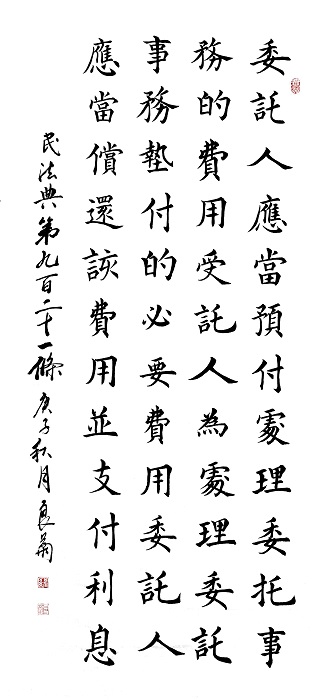 委託人應當預付處理委托事
務的費用受託人為處理委託
事務墊付的必要費用委託人
應當償還該費用並支付利息
民法典第九百二十一條庚子秋月良菊